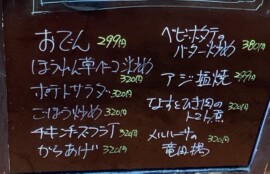 おでん 299円
ほうれん草ベーコン炒め 320円
ポテトサラダ 320円
ごぼう炒め 320円
チキンナンプラー 320円
からあげ 320円
ベビーホタテの
バター炒め 380円
アジ塩焼 299円
なすとひき肉の
トマト煮 320円
メルルーサの
竜田揚 320円